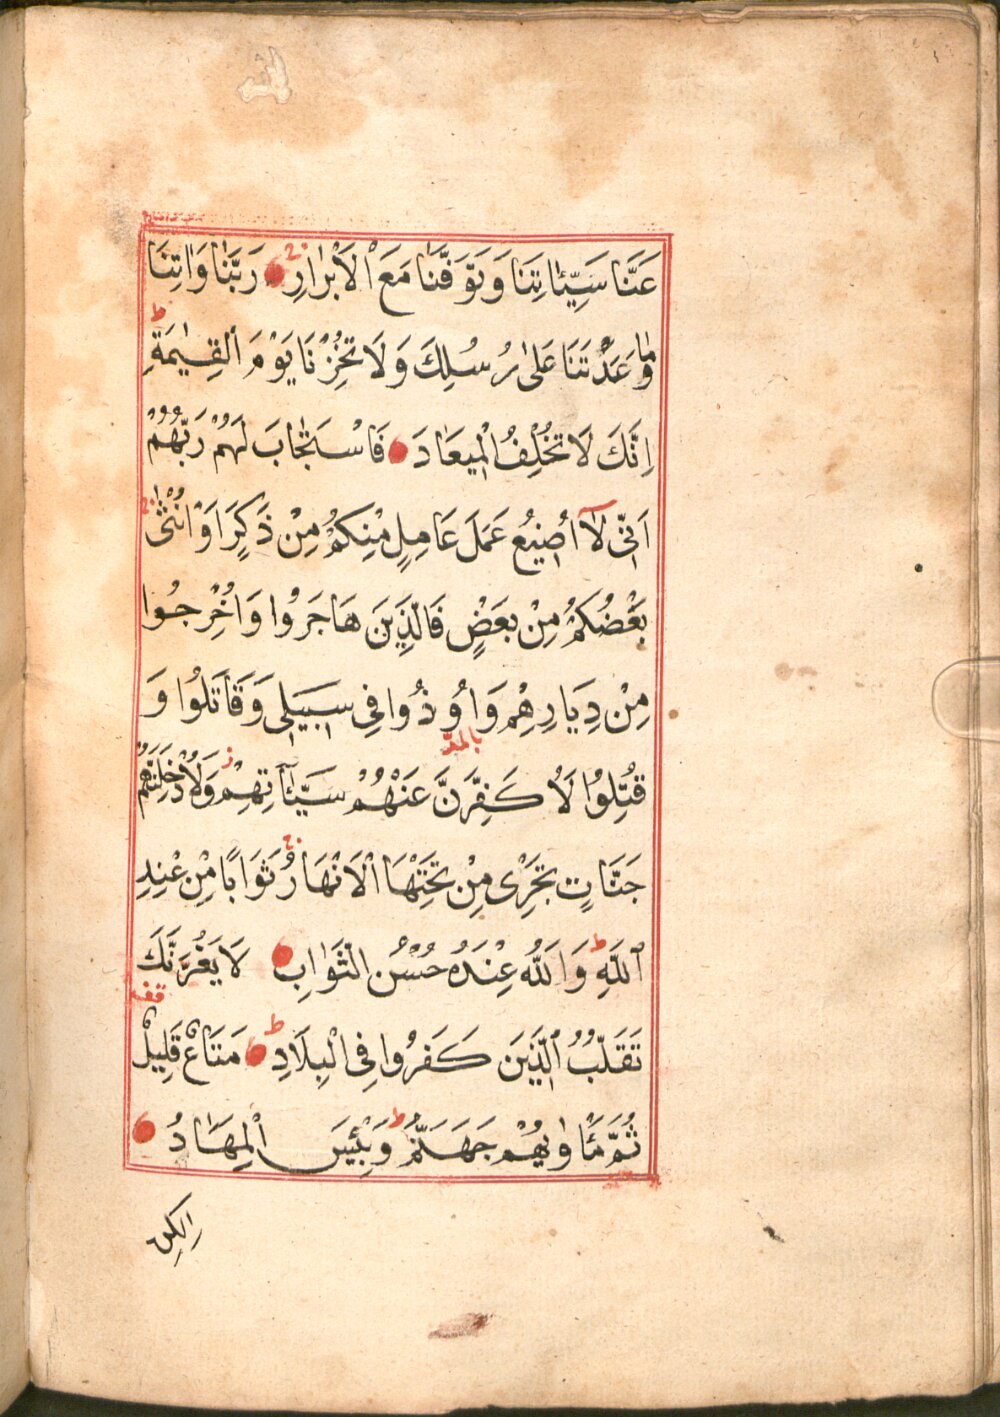 عَنَّا سَيِّئٰاتِنَا وَتَوَفَّنَا مَعَ الْاَبْرٰارِ رَبَّنٰا وَاٰتِنَا
مٰا وَعَدْتَنَا عَلىٰ رُسُلِكَ وَلَا تُخْزِنَا يَوْمَ الْقِيٰمَةِ ط
اِنَّكَ لَا تُخْلِفُ الْمِيعَادَ فَاسْتَجٰابَ لَهُمْ رَبُّهُمْ
اَنّٖى لَآ اُضِيعُ عَمَلَ عَامِلٍ مِنْكُمْ مِنْ ذَكَرٍ اَوْ اُنْثٰى
بَعْضُكُمْ مِنْ بَعْضٍ فَالَّذِينَ هَاجَرُوا وَاُخْرِجُوا
مِنْ دِيَارِهِمْ وَاُوذُوا فِى سَبِيلِى وَقَاتَلُوا وَ
بالمد
قُتِلُوا لَاُكَفِّرَنَّ عَنْهُمْ سَيِّئَآتِهِمْ ز وَلَاُدْخِلَنَّهُمْ
جَنَّاتٍ تَجْرِى مِنْ تَحْتِهَا الْاَنْهَارُ ثَوَابًا مِنْ عِنْدِ
اللّٰهِ ط وَاللّٰهُ عِنْدَهُ حُسْنُ الثَّوَابِ لَا يَغُرَّنَّكَ
قف
تَقَلُّبُ الَّذِينَ كَفَرُوا فِى الْبِلَادِ ط مَتَاعٌ قَلِيلٌ
ثُمَّ مَأْوٰيهُمْ جَهَنَّمُ ط وَبِئْسَ الْمِهَادُ
لٰكِنِ